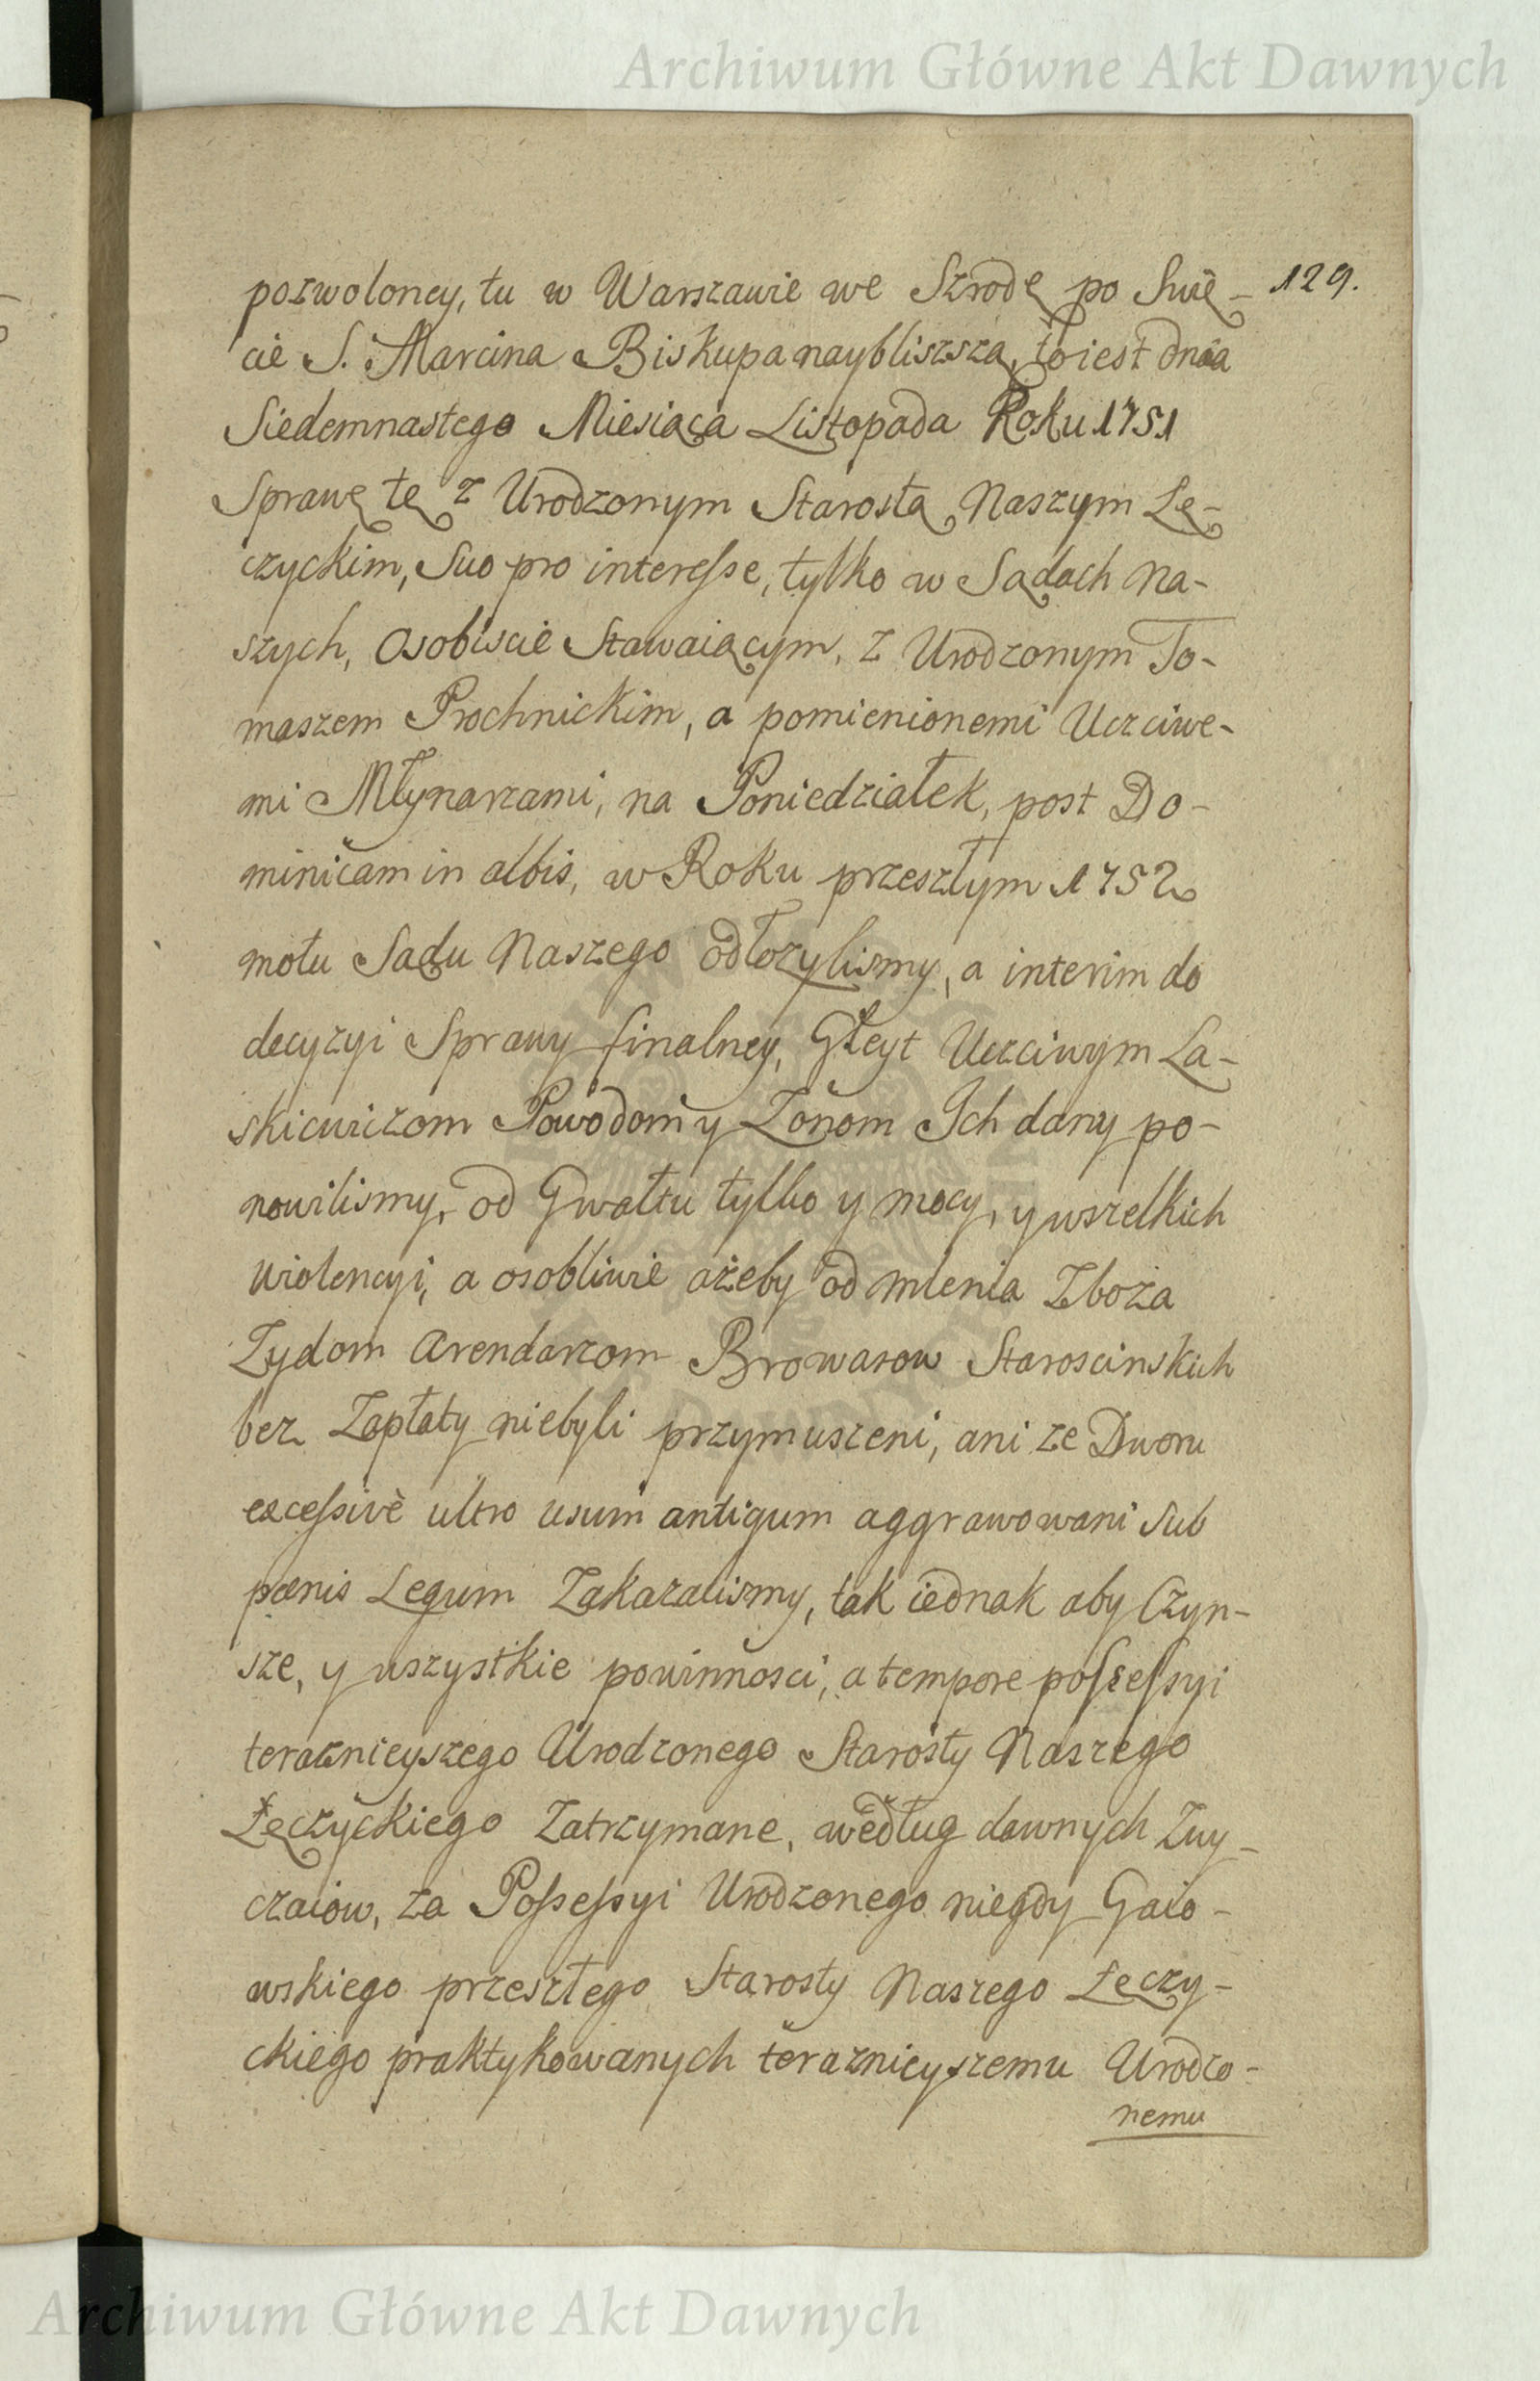 Archiwum Główne Akt Dawnych
pozwoloney, tu w Warszawie we Szrodę po Swię- 129.
cie S. Marcina Biskupa naybliszszą, to iest dnia
Siedemnastego Miesiąca Listopada Roku 1751
Sprawę tę z Urodzonym Starostą Naszym Łę-
czyckim, Suo pro interesse, tylko w Sądach Na-
szych, Osobiscie Stawaiącym, z Urodzonym To-
maszem Prochnickim, a pomienionemi Uczciwe-
mi Młynarzami, na Poniedziałek, post Do-
minicam in albis, w Roku przeszłym 1752
motu Sądu Naszego odłozylismy, a interim do
decyzyi Sprawy finalney, Gleyt Uczciwym La-
skiewiczom Powodom y Zonom Ich dany po-
nowilismy, od Gwałtu tylko y mocy, y wszelkich
wiolencyi, a osobliwie ażeby od mlenia Zboża
Zydom Arendarzom Browarow Staroscinskich
bez Zapłaty niebyli przymuszeni, ani ze Dworu
excessivè ultro usum antiqum aggrawowani Sub
pœnis Legum Zakazalismy, tak iednak aby Czyn-
sze, y wszystkie powinnosci, a tempore possessyi
teraznieyszego Urodzonego Starosty Naszego
Łęczyckiego Zatrzymane, według dawnych Zwy-
czaiow, za Possessyi Urodzonego niegdy Gaio-
wskiego przeszłego Starosty Naszego Łęczy-
ckiego praktykowanych teraznieyszemu Urodzo-
nemu
Archiwum Główne Akt Dawnych